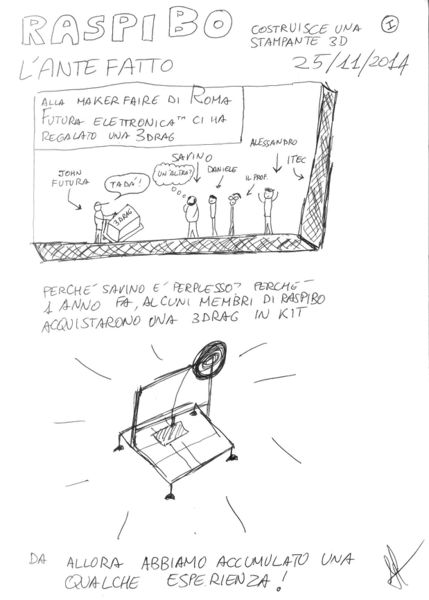 RASPIBO
COSTRUISCE UNA
STAMPANTE 3D
I
L'ANTEFATTO
25/11/2014
ALLA MAKERFAIRE DI ROMA
FUTURA ELETTRONICA™ CI HA
REGALATO UNA 3DRAG
JOHN
FUTURA
TADA'!
3DRAG
UN'ALTRA?
SAVINO
DANIELE
IL PROF.
ALESSANDRO
ITEC
PERCHE' SAVINO E' PERPLESSO? PERCHE'
1 ANNO FA, ALCUNI MEMBRI DI RASPIBO
ACQUISTARONO UNA 3DRAG IN KIT
DA ALLORA ABBIAMO ACCUMULATO UNA
QUALCHE ESPERIENZA!